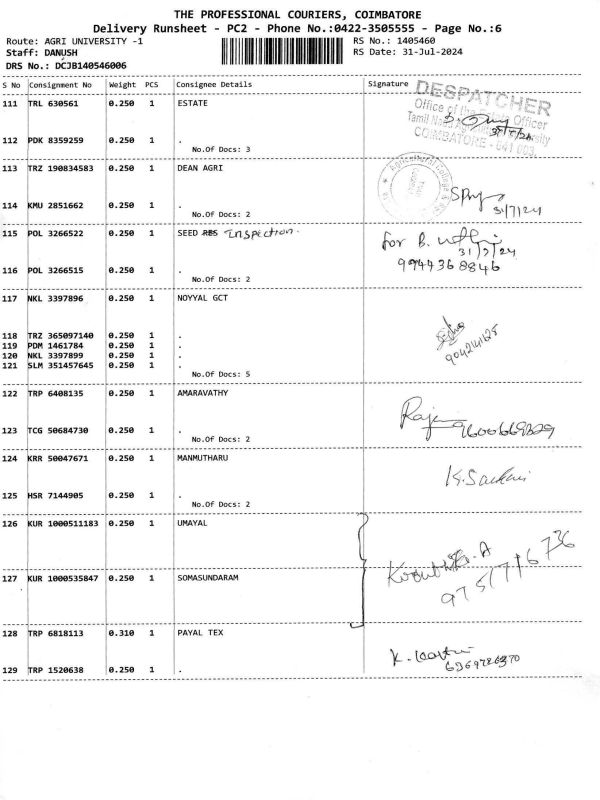 THE PROFESSIONAL COURIERS, COIMBATORE
Delivery Runsheet - PC2 - Phone No.:0422-3505555 - Page No.:6
Route: AGRI UNIVERSITY -1 RS No.: 1405460
Staff: DANUSH RS Date: 31-Jul-2024
DRS No.: DCJB140546006
S No Consignment No Weight PCS Consignee Details Signature
DESPATCHER
111 TRL 630561 0.250 1 ESTATE
Office of the Officer
Tamil University
COIMBATORE - 641 003
112 PDK 8359259 0.250 1 .
No.Of Docs: 3
113 TRZ 190834583 0.250 1 DEAN AGRI
Agricultural College
114 KMU 2851662 0.250 1 .
31/7/24
No.Of Docs: 2
115 POL 3266522 0.250 1 SEED RES Inspection.
for B.
31/7/24
9944368846
116 POL 3266515 0.250 1 .
No.Of Docs: 2
117 NKL 3397896 0.250 1 NOYYAL GCT
118 TRZ 365097140 0.250 1 .
119 PDM 1461784 0.250 1 .
120 NKL 3397899 0.250 1 .
121 SLM 351457645 0.250 1 .
No.Of Docs: 5
122 TRP 6408135 0.250 1 AMARAVATHY
123 TCG 50684730 0.250 1 .
No.Of Docs: 2
124 KRR 50047671 0.250 1 MANMUTHARU
125 HSR 7144905 0.250 1 .
No.Of Docs: 2
126 KUR 1000511183 0.250 1 UMAYAL
127 KUR 1000535847 0.250 1 SOMASUNDARAM
9757716736
128 TRP 6818113 0.310 1 PAYAL TEX
129 TRP 1520638 0.250 1 .